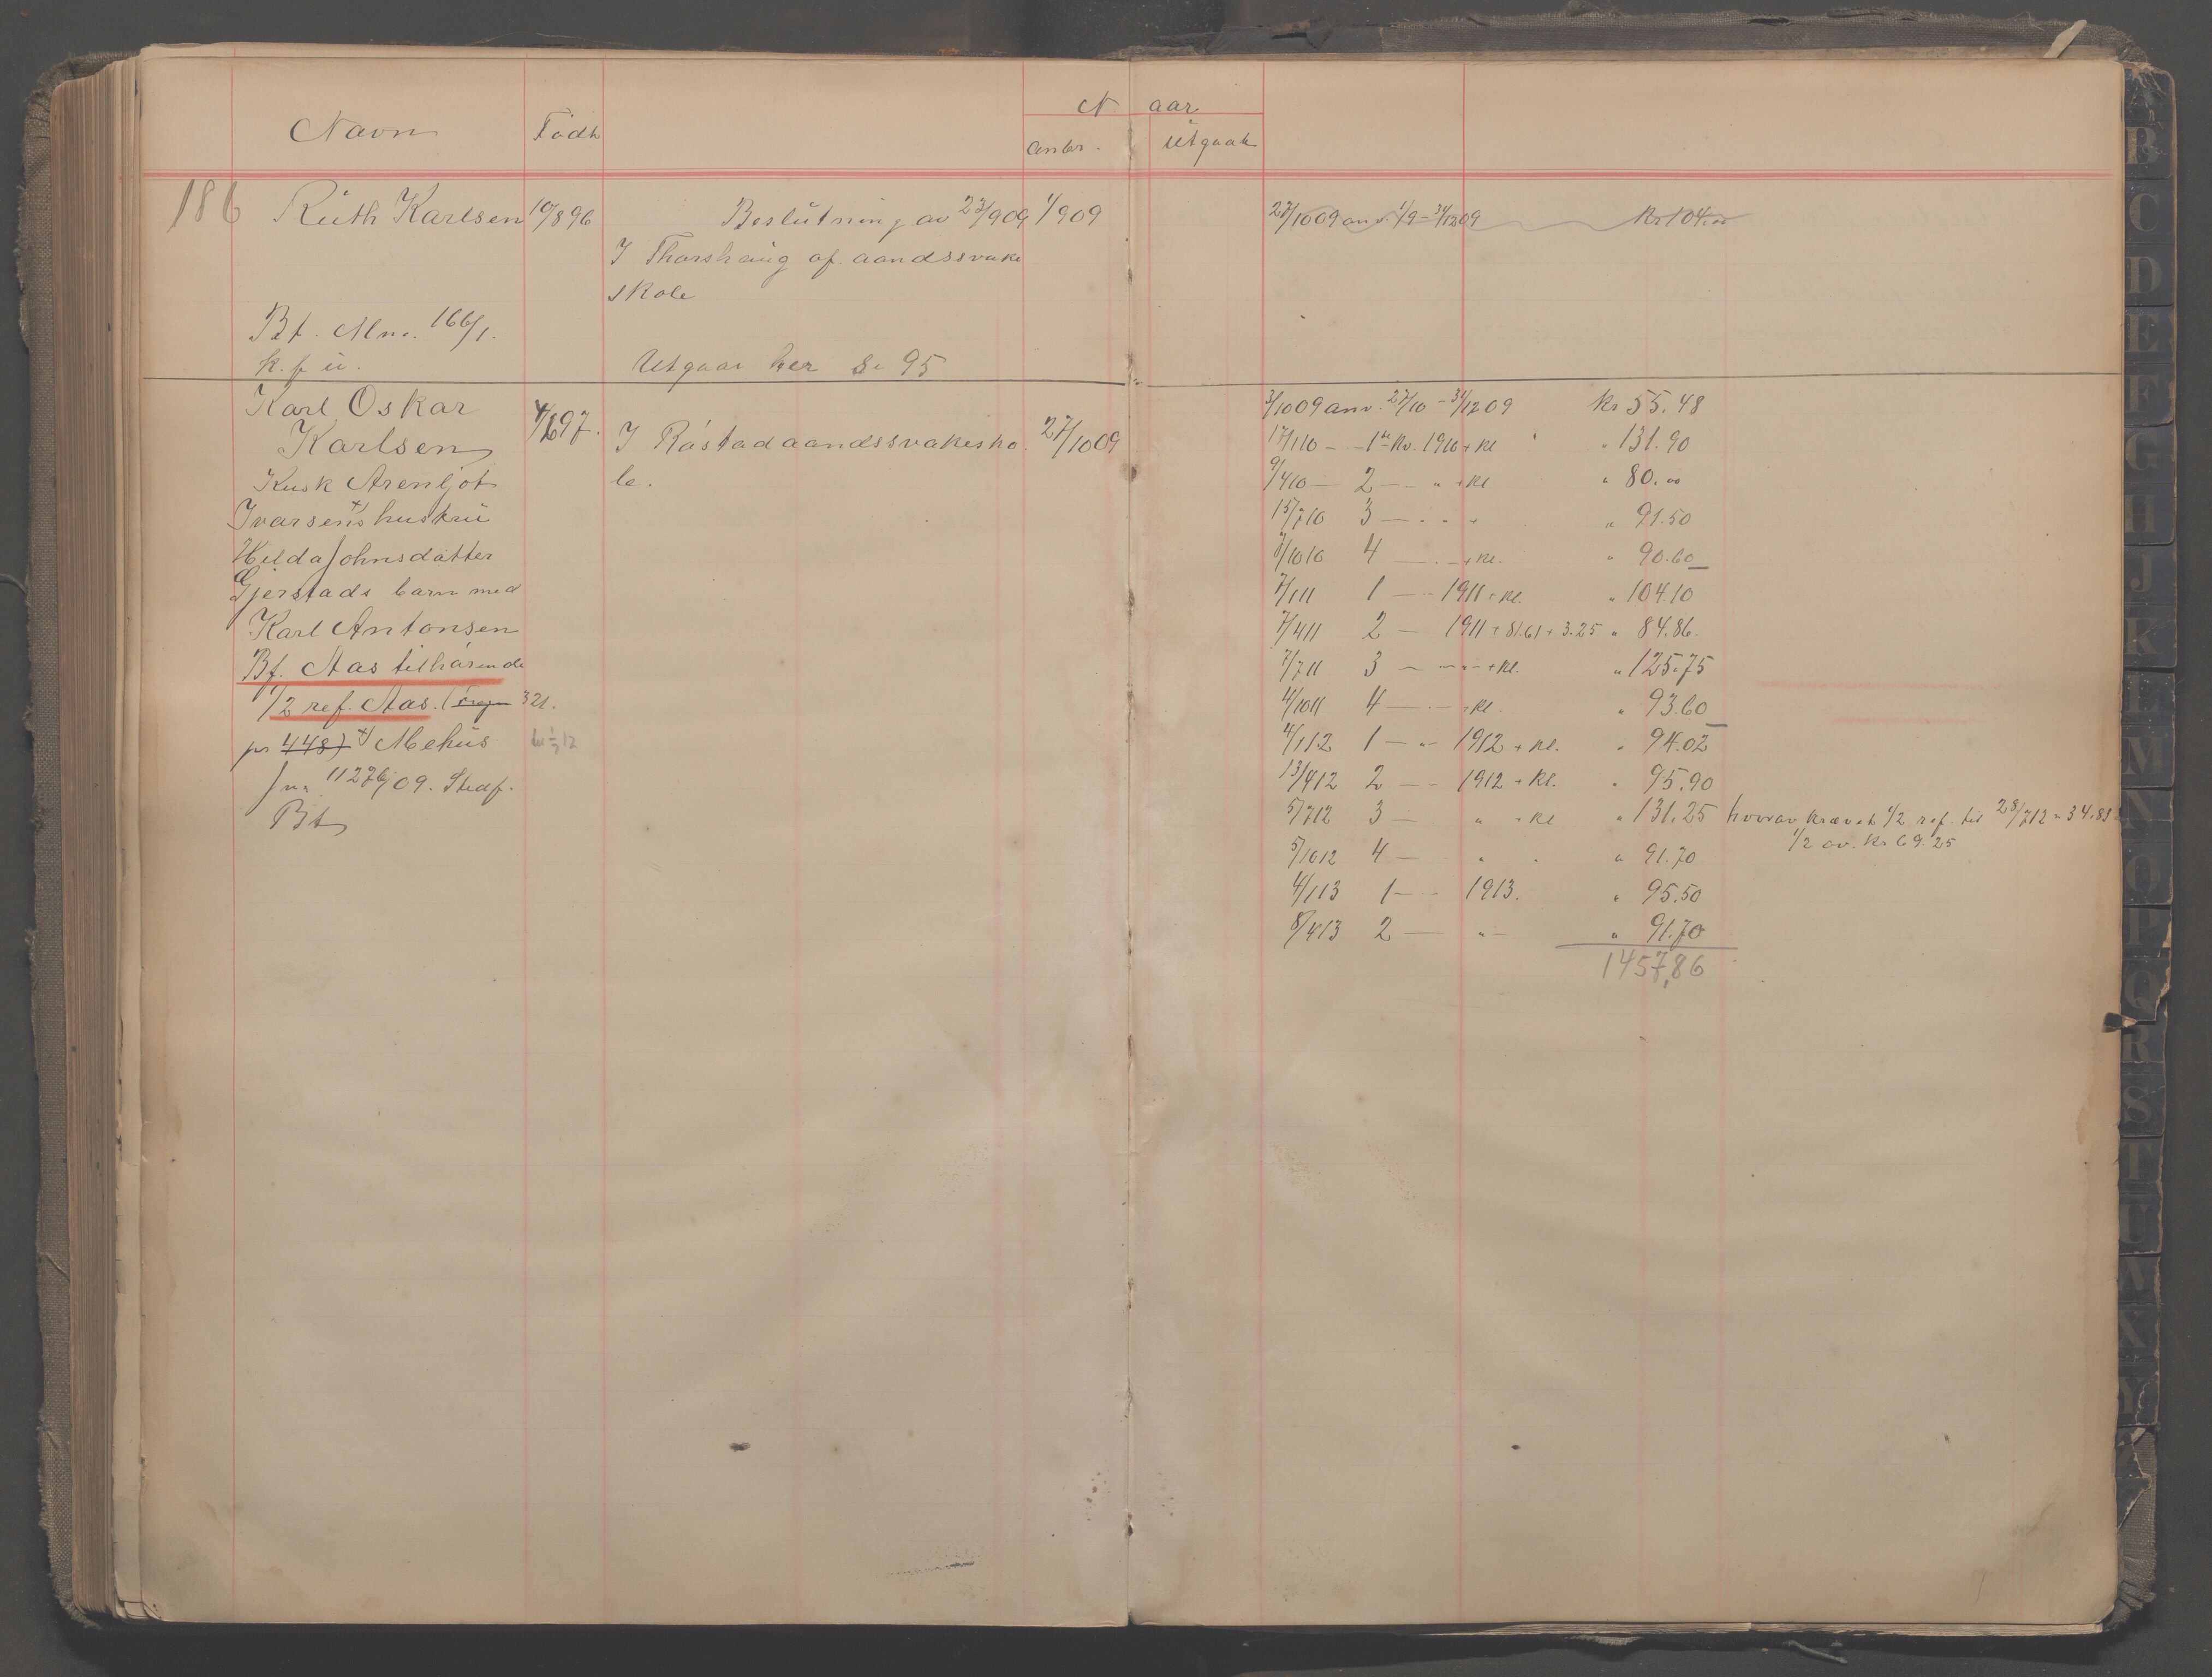 N aar
Navn Födt Anbr. Utgaat
186 Ruth Karlsen 10/8 96 Beslutning av 23/9 09 1/9 09 27/10 09 anv. 1/9 - 31/12 09 Kr 104.00
I Thorshaug af. aandssvake
skole
Bf. Mno. 166/1.
k. f. u. Utgaar her Se 95
Karl Oskar 3/10 09 anv. 27/10 - 31/12 09 Kr 55.48
Karlsen 97. I Röstad aandssvakesko 27/10 09 17/1 10 - 1ste Kv. 1910 + Kl " 131.90
Kusk Arenljot le. 9/4 10 - 2 - " + Kl " 80.00
Ivarsens +) hustru 15/7 10 3 - " " + " 91.50
Hilda Johnsdatter 7/10 10 4 - " + Kl. " 90.60
Gjerstads barn med 7/1 11 1 - 1911 + Kl. " 104.10
Karl Antonsen 7/4 11 2 - 1911 + 81.61 + 3.25 " 84.86.
Bf. Aas tilhörende 7/7 11 3 - " + Kl. " 125.75
1/2 ref. Aas. 321. 4/10 11 4 - " + Kl. " 93.60
pr 448) +) Mehus 4/1 12 1 - " 1912 + Kl. " 94.02
Jn. 1127/09. Stedf. 13/4 12 2 - 1912 + Kl. " 95.90
Bf 5/7 12 3 - " + Kl " 131.25 hvorav krævet 1/2 ref. til 28/7 12 = 34.83
1/2 av. Kr 69.25
5/10 12 4 - " " 91.70
4/1 13 1 - 1913. " 95.50
8/4 13 2 - " " 91.70
1457,86
B
C
D
E
F
G
H
J
K
L
M
N
O
P
Q
R
S
T
U
V
X
Y